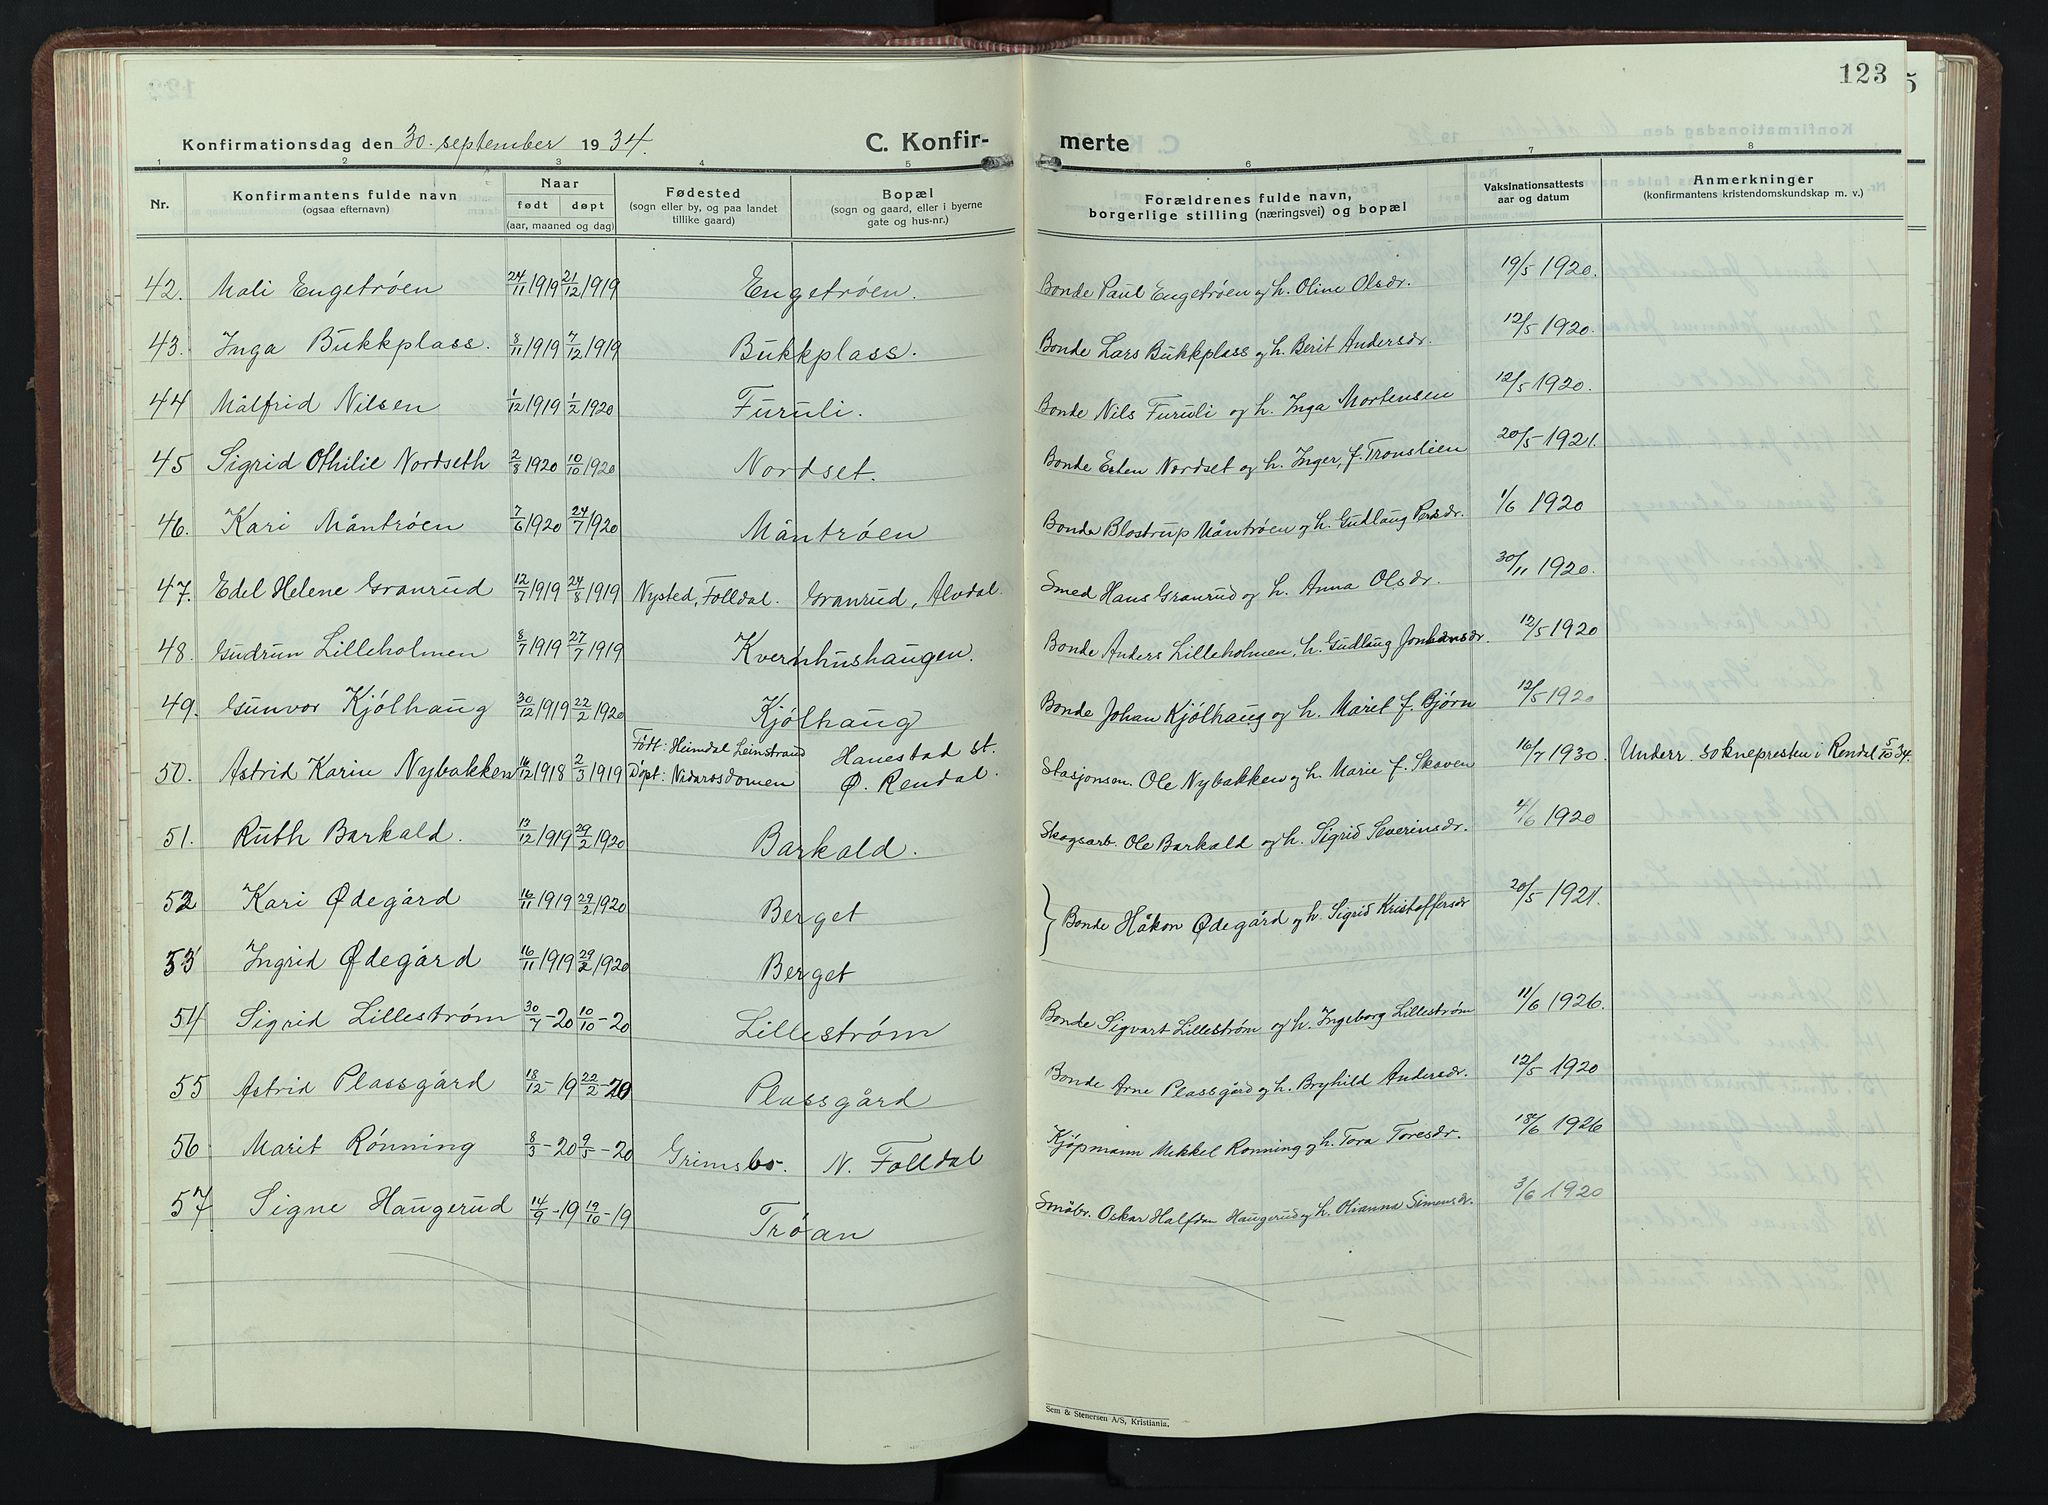 123
Konfirmationsdag den 30. september 1934.
C. Konfir- merte
1 2 3 4 5 6 7 8
Nr.
Konfirmantens fulde navn (ogsaa efternavn)
Naar født døpt (aar, maaned og dag)
Fødested (sogn eller by, og paa landet tillike gaard)
Bopæl (sogn og gaard, eller i byerne gate og hus-nr.)
Forældrenes fulde navn, borgerlige stilling (næringsvei) og bopæl
Vaksinationsattests aar og datum
Anmerkninger (konfirmantens kristendomskundskap m. v.)
42. Mali Engetrøen 24/11 1919 21/12 1919 Engetrøen. Bonde Paul Engetrøen og h. Oline Olsdr. 19/5 1920.
43. Inga Bukkplass. 8/11 1919 7/12 1919 Bukkplass. Bonde Lars Bukkplass og h. Berit Andersdr. 12/5 1920.
44 Målfrid Nilsen 1/12 1919 1/2 1920 Furuli. Bonde Nils Furuli og h. Inga Mortensen 12/5 1920.
45 Sigrid Othilie Nordseth 2/8 1920 10/10 1920 Nordset. Bonde Esten Nordset og h. Inger, f. Tronslien 20/5 1921.
46. Kari Måntrøen 7/6 1920 24/7 1920 Måntrøen Bonde Blostrup Måntrøen og h. Gudlaug Persdr. 1/6 1920
47. Edel Helene Granrud 12/7 1919 24/8 1919 Nysted, Folldal. Granrud, Alvdal. Smed Hans Granrud og h. Anna Olsdr. 30/11 1920.
48. Gudrun Lilleholmen 8/7 1919 27/7 1919 Kvernhushaugen. Bonde Anders Lilleholmen, h. Gudlaug Johansdr. 12/5 1920
49. Gunvor Kjølhaug 30/12 1919 22/2 1920 Kjølhaug Bonde Johan Kjølhaug og h. Marit f. Bjørn 12/5 1920
50. Astrid Karin Nybakken 16/12 1918 2/3 1919 Født: Heimdal Leinstrand Døpt: Nidarosdomen Hanestad st. Ø. Rendal. Stasjonsm. Ole Nybakken og h. Marie f. Skoven 16/7 1930. Underr. soknepresten i Rendal 5/10 34.
51. Ruth Barkald. 13/12 1919 29/2 1920 Barkald. Skogsarb. Ole Barkald og h. Sigrid Severinsdr. 4/6 1920
52 Kari Ødegård 16/11 1919 29/2 1920 Berget } Bonde Håkon Ødegård og h. Sigrid Kristoffersdr 20/5 1921.
53 Ingrid Ødegård 16/11 1919 29/2 1920 Berget
54 Sigrid Lillestrøm 30/7 - 20 10/10 - 20 Lillestrøm Bonde Sigvart Lillestrøm og h. Ingeborg Lillestrøm 11/6 1926.
55 Astrid Plassgård 18/12 - 19 22/2 - 20 Plassgård Bonde Arne Plassgård og h. Bryhild Andersdr. 12/5 1920
56 Marit Rønning 8/3 - 20 9/5 - 20 Grimsbo. N. Folldal Kjøpmann Mikkel Rønning og h. Tora Toresdr. 18/6 1926
57 Signe Haugerud 14/9 - 19 19/10 - 19 Trøan Småbr. Oskar Halfdan Haugerud og h. Olianna Simensdr. 3/6 1920
Sem & Stenersen A/S, Kristiania.